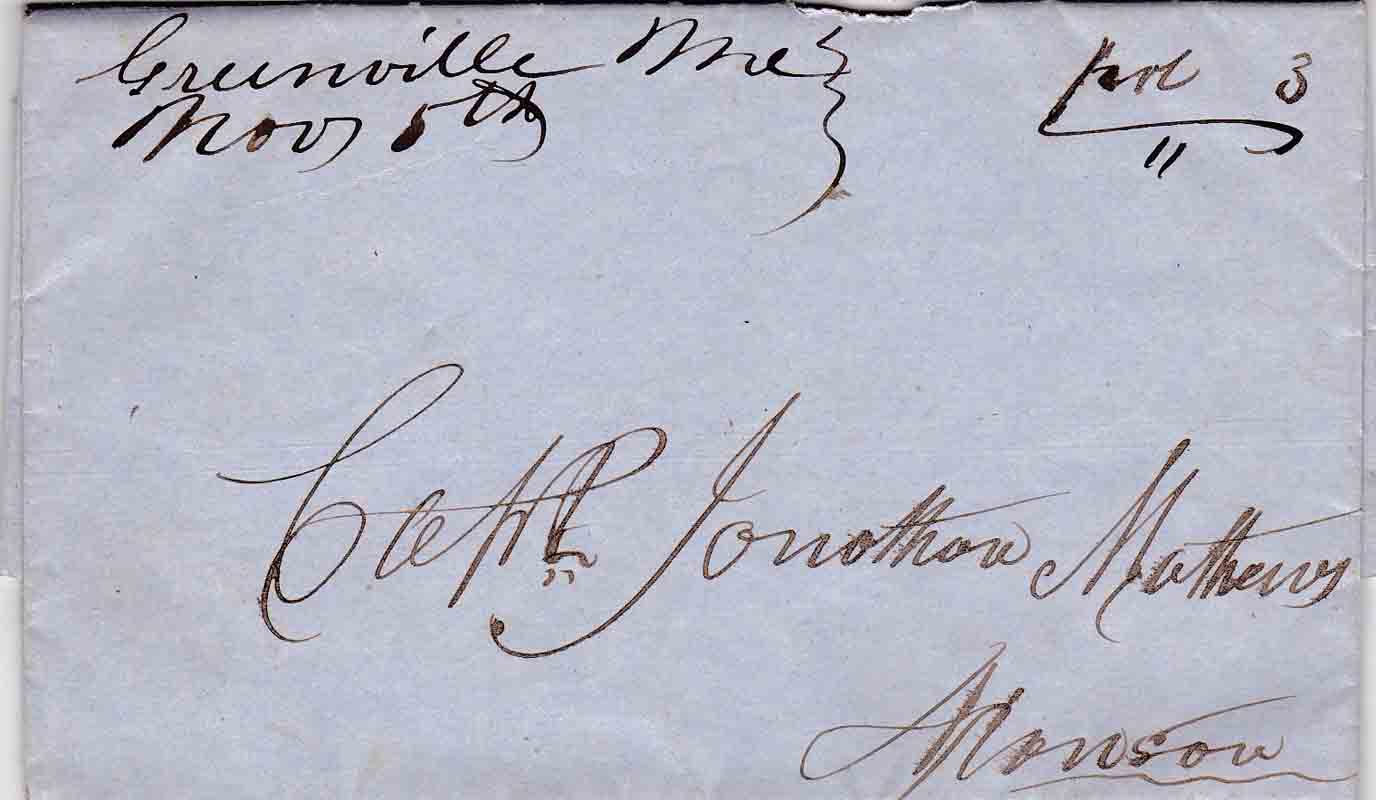 Greenville Me
Nov 5th
Paid 3
"
Capt Jonathan Mathews
Monson